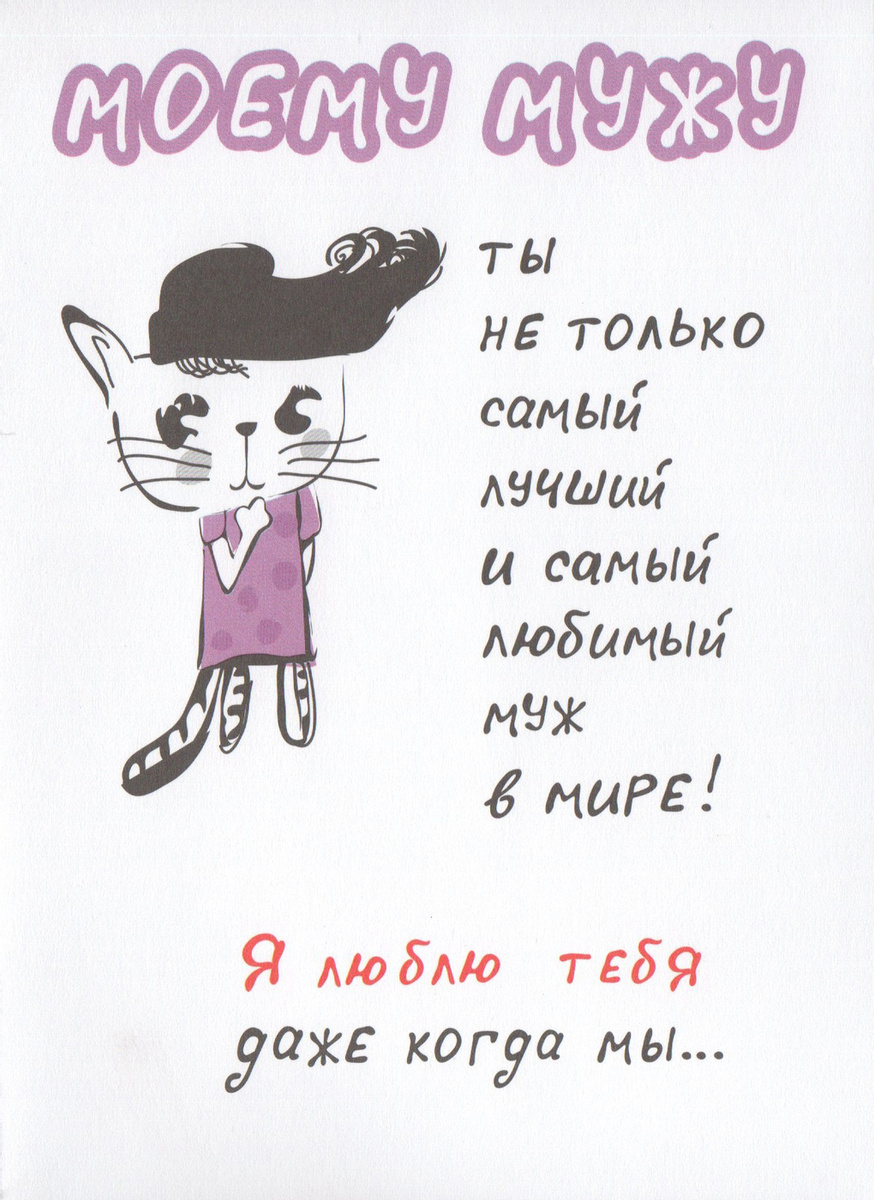 МОЕМУ МУЖУ
ты
не только
самый
лучший
и самый
любимый
муж
в мире!
Я люблю тебя
даже когда мы...